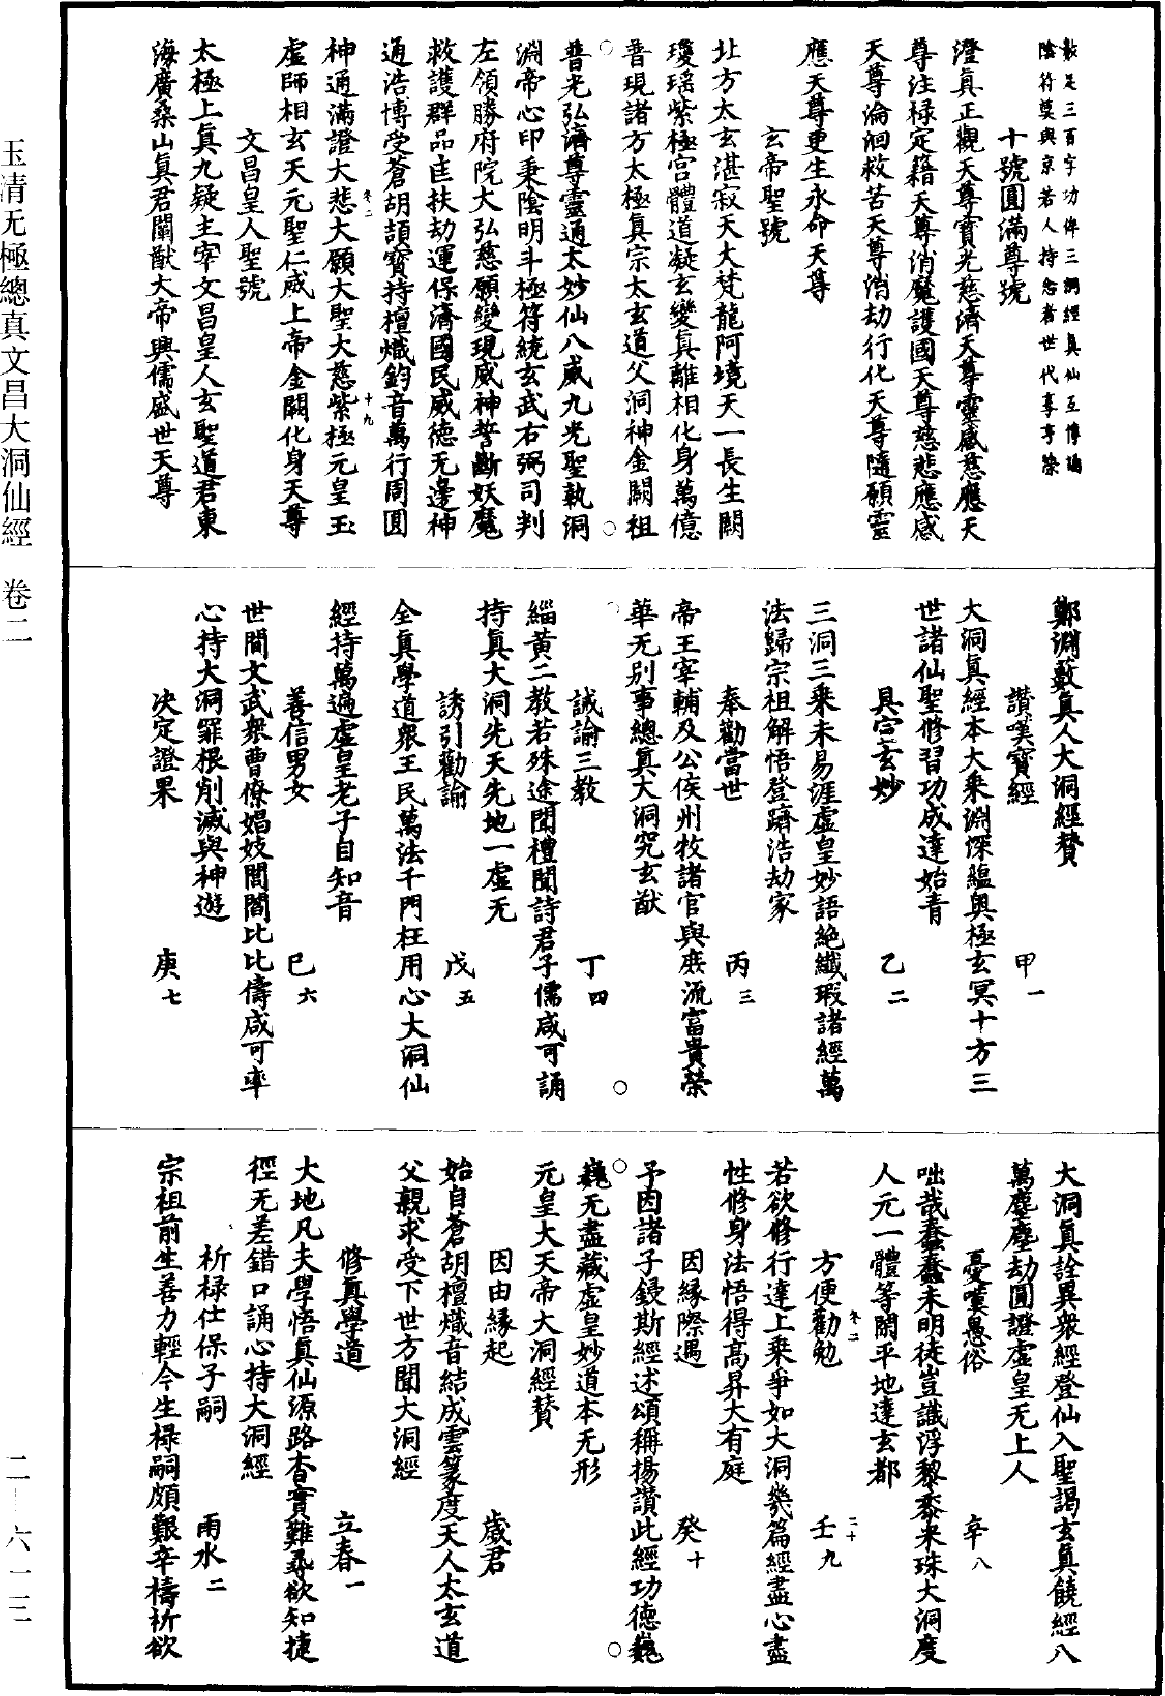 數足三百字功俾三洞經真仙互傳誦
陰符莫與京若人持念者世代享亨榮
十號圓滿尊號
澄真正觀天尊寶光慈濟天尊靈感慈應天
尊注祿定籍天尊消魔護國天尊慈悲應感
天尊淪洄救苦天尊消劫行化天尊隨願靈
應天尊更生永命天尊
玄帝聖號
北方太玄湛寂天大梵龍阿境天一長生闕
瓊瑤紫極宮體道凝玄變真離相化身萬億
普現諸方太極真宗太玄道父洞神金闕祖
普光弘濟尊靈通太妙仙八威九光聖執洞
淵帝心印秉陰明斗極符統玄武右弼司判
左領勝府院大弘慈願變現威神誓斷妖魔
救護群品匡扶劫運保濟國民威德无邊神
通浩博受蒼胡頡寶持檀熾鈞音萬行周圓
神通滿證大悲大願大聖大慈紫極元皇玉
虛師相玄天元聖仁威上帝金闕化身天尊
文昌皇人聖號
太極上真九疑主宰文昌皇人玄聖道君東
海廣桑山真君闡猷大帝興儒盛世天尊
卷二
十九
鄭淵藪真人大洞經贊
讚嘆寶經 甲一
大洞真經本大乘淵深蘊奧極玄冥十方三
世諸仙聖修習功成達始青
具宣玄妙 乙二
三洞三乘未易涯虛皇妙語絶纖瑕諸經萬
法歸宗祖解悟登躋浩劫家
奉勸當世 丙三
帝王宰輔及公侯州牧諸官與庶流富貴榮
華无别事總真大洞究玄猷
誡諭三教 丁四
緇黃二教若殊途聞禮聞詩君子儒咸可誦
持真大洞先天先地一虛无
誘引勸諭 戊五
全真學道眾王民萬法千門枉用心大洞仙
經持萬遍虛皇老子自知音
善信男女 巳六
世間文武眾曹僚娼妓閭閻比比儔咸可率
心持大洞罪根削滅與神遊
決定證果 庚七
大洞真詮異衆經登仙入聖謁玄真饒經八
萬塵塵劫圓證虛皇无上人
憂嘆愚俗 辛八
咄哉蠢蠢未明徒豈識浮黎黍米珠大洞度
人元一體等閑平地達玄都
方便勸勉 壬九
若欲修行達上乘爭如大洞幾篇經盡心盡
性修身法悟得高昇大有庭
因緣際遇 癸十
予因諸子鋟斯經述頌稱揚讚此經功德巍
巍无盡藏虛皇妙道本无形
元皇大天帝大洞經贊
因由緣起 歲君
始自蒼胡檀熾音結成雲篆度天人太玄道
父親求受下世方聞大洞經
修真學道 立春一
大地凡夫學悟真仙源路杳實難尋欲知捷
徑无差錯口誦心持大洞經
祈祿仕保子嗣 雨水二
宗祖前生善力輕今生祿嗣頗艱辛禱祈欲
卷二
二十
玉清无極總真文昌大洞仙經 卷二
二—六一三